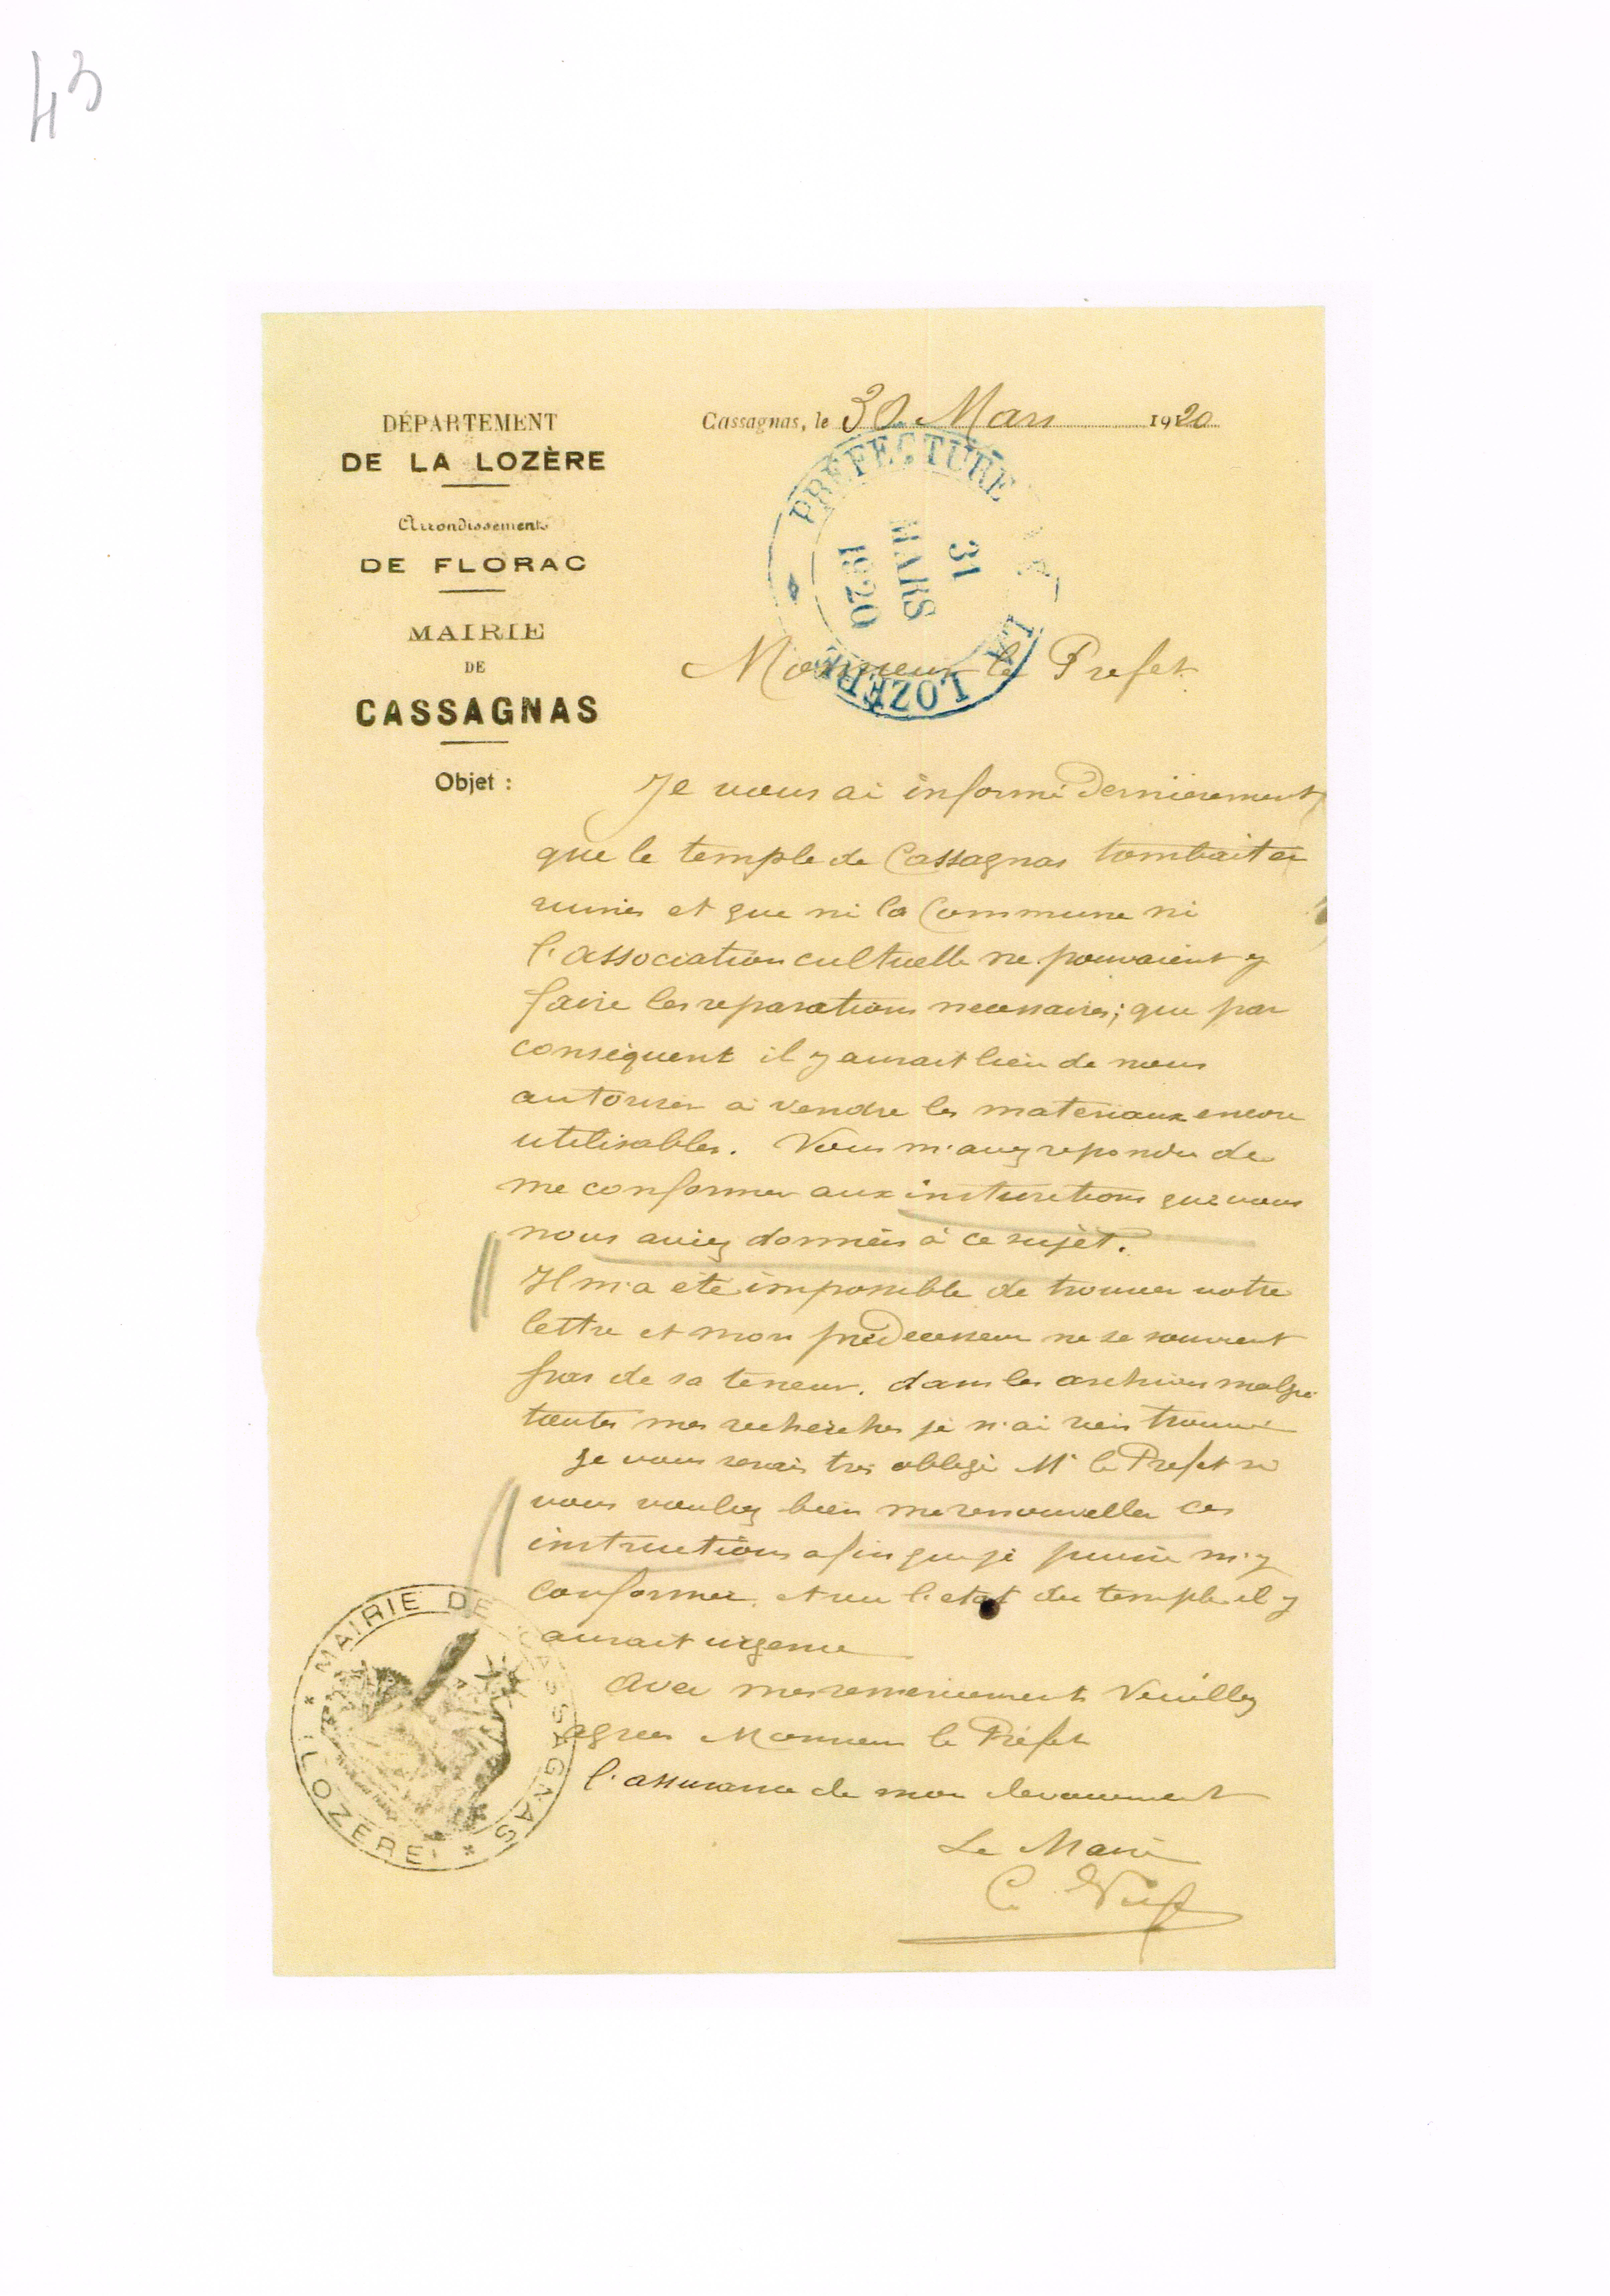 43
DÉPARTEMENT
DE LA LOZÈRE
Arrondissement
DE FLORAC
MAIRIE
DE
CASSAGNAS
Objet :
Cassagnas, le 30 Mars 1920
PRÉFECTURE DE LA LOZÈRE
31
MARS
1920
Monsieur le Prefet
Je vous ai informé dernièrement
que le temple de Cassagnas tombait en
ruines et que ni la Commune ni
l'association cultuelle ne pouvaient y
faire les reparations necessaires; que par
conséquent il y aurait lieu de nous
autoriser à vendre les materiaux encore
utilisables. Vous m'avez repondu de
me conformer aux instructions que vous
nous aviez données à ce sujet.
Il m'a été impossible de trouver votre
lettre et mon prédecesseur ne se souvient
pas de sa teneur. dans les archives malgré
toutes mes recherches je n'ai rien trouvé
Je vous serais tres obligé Mr le Prefet si
vous vouliez bien me renouveller ces
instructions afin que je puisse m'y
conformer. et vu l'etat du temple il y
aurait urgence
Avec mes remerciements Veuillez
agreer Monsieur le Préfet
l'assurance de mon devouement
Le Maire
C.
MAIRIE DE CASSAGNAS
* LOZÈRE *